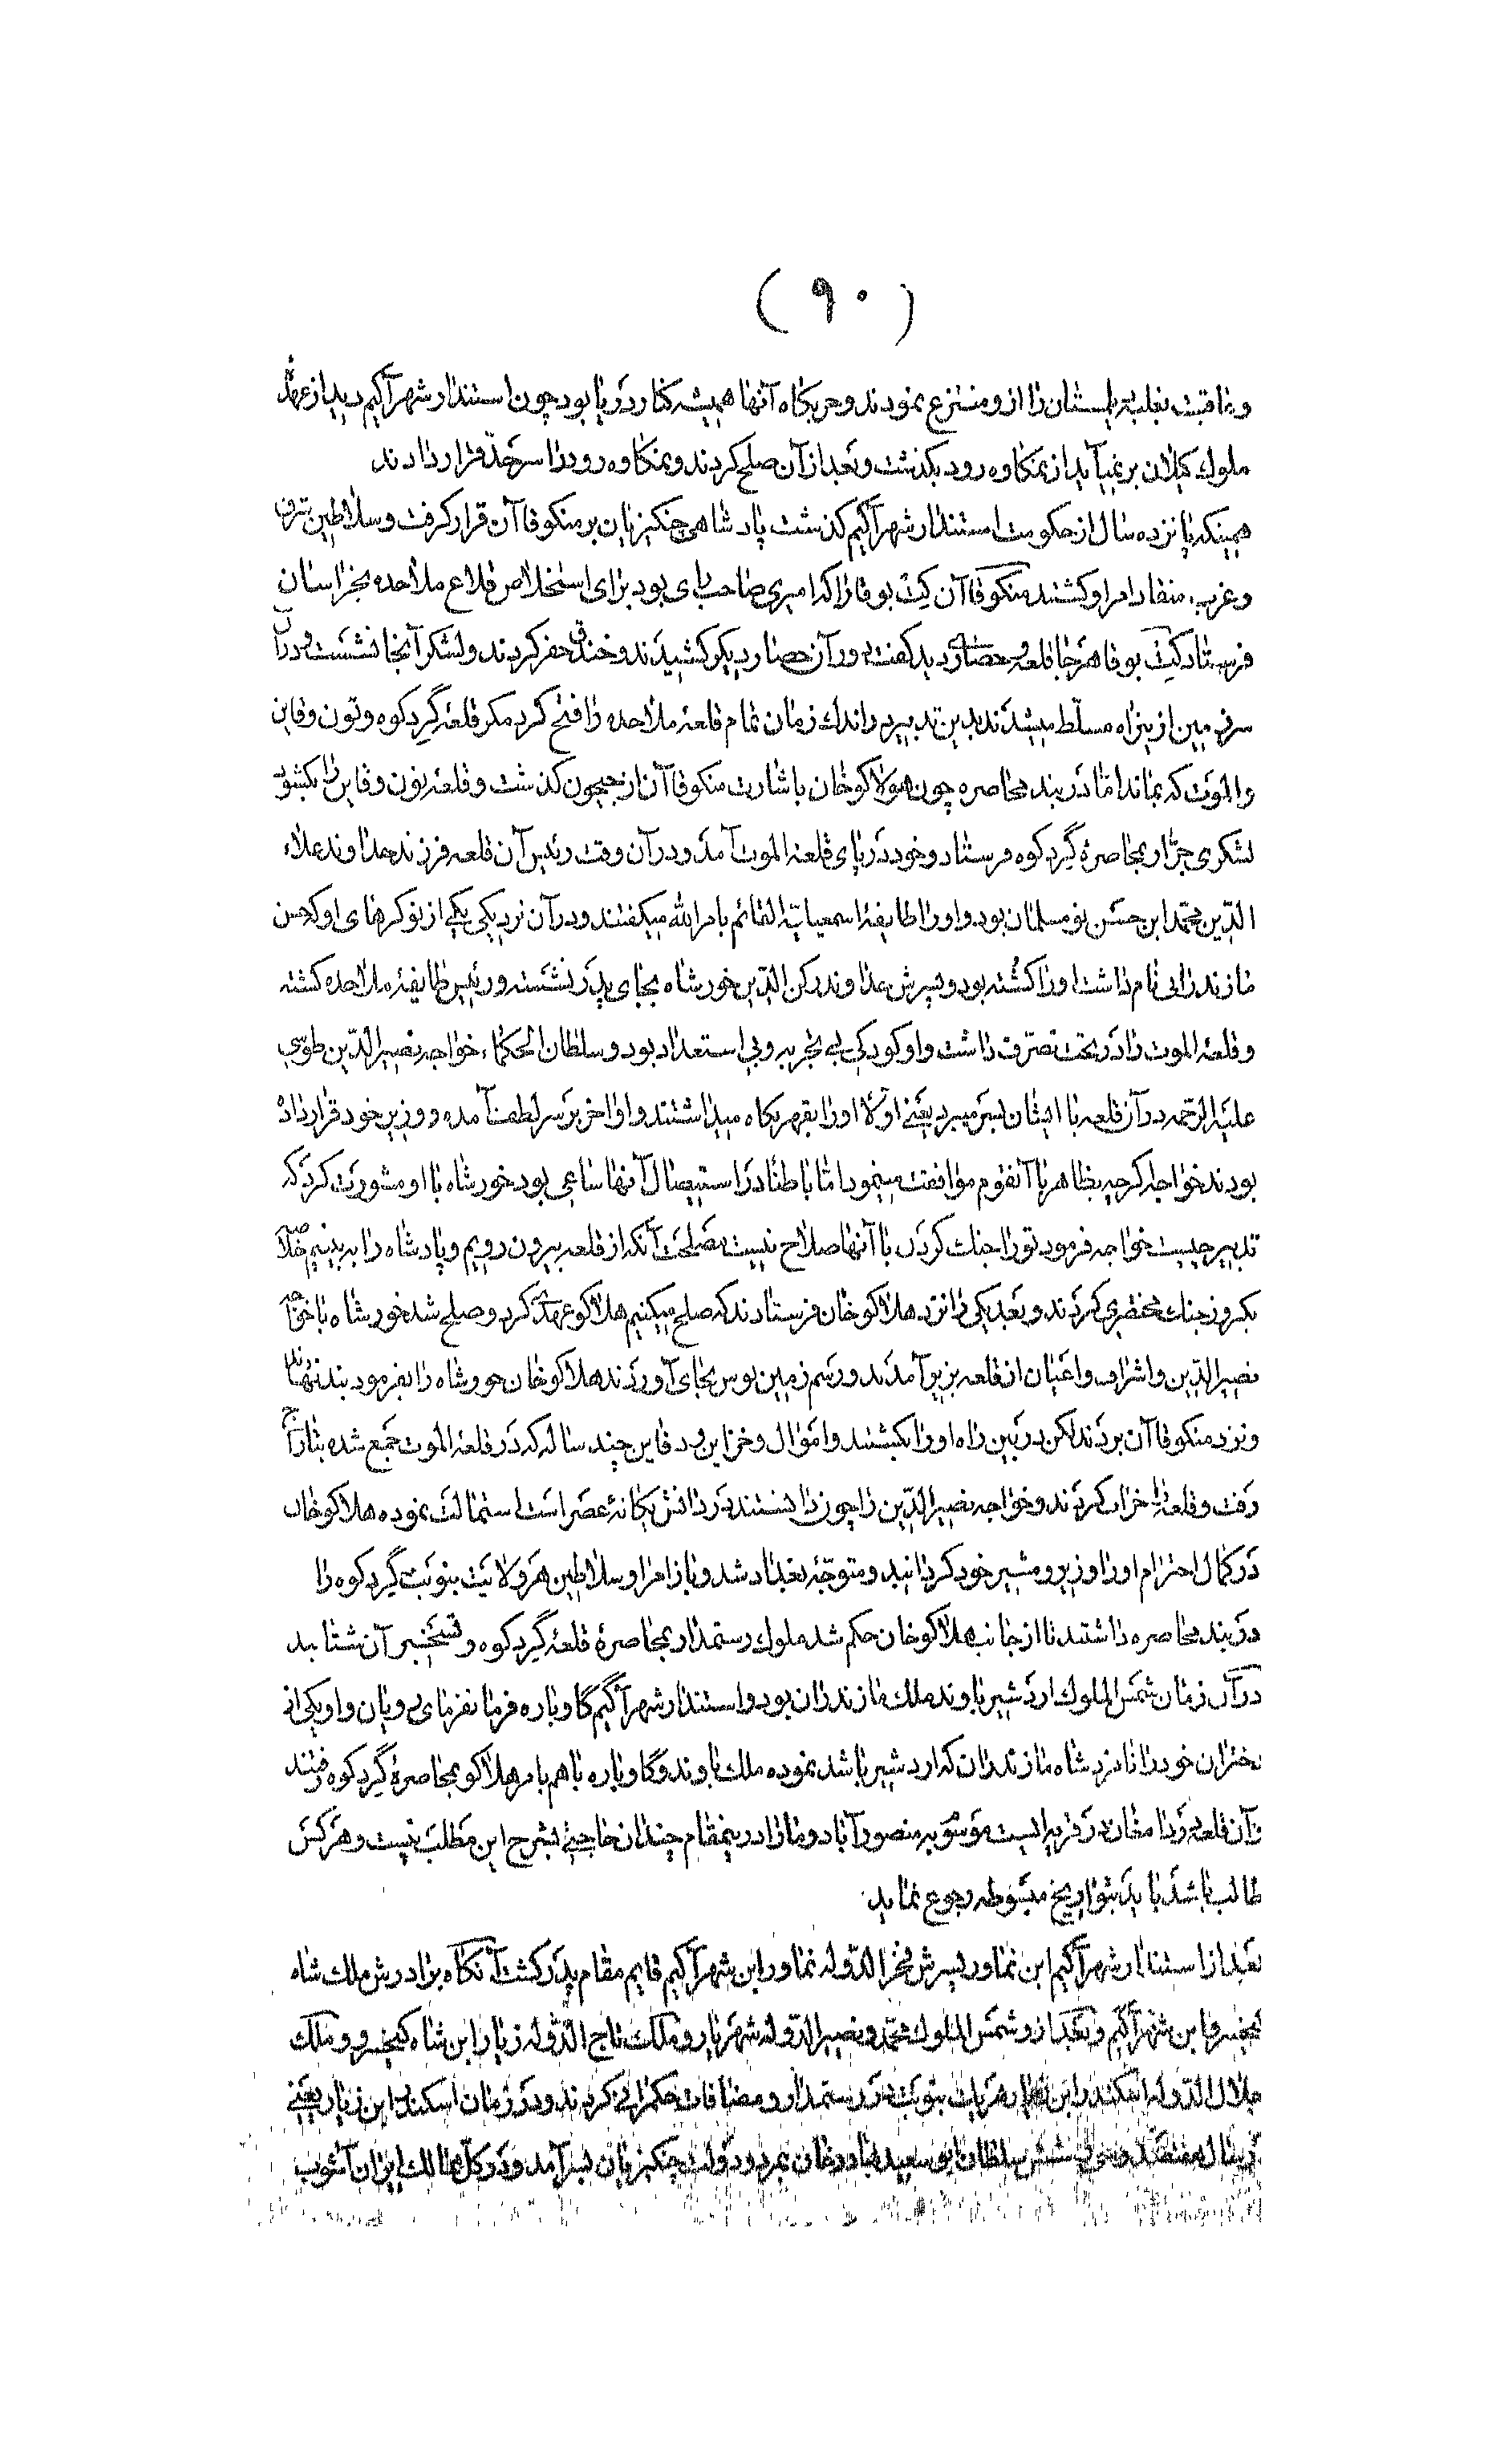 (۹۰)
و عاقبت بغلبه پلستان را ازو منتزع نمودند و حربگاه آنها همیشه کنار دریا بود چون استندار شهرآگیم دید از عهدهٔ
ملوك کیلان بر نمیآید از نمکاوه رود بکذشت و بعد از آن صلح کردند و نمکاوه رود را سرحد قرار دادند
همینکه پانزده سال از حکومت استندار شهرآگیم کذشت پادشاهی چنکیزیان بر منکوقاآن قرار کرفت و سلاطین شرق
و غرب منقاد امر او کشتند منکوقاآن کیت بوقا را که امیری صاحب رای بود برای استخلاص قلاع ملاحده بخراسان
فرستاد کیت بوقا هر جا قلعه و حصاری دید کفت بر دور آن حصار دیکر کشیدند و خندق حفر کردند و لشکر آنجا نشست و در آن
سرزمین ازینراه مسلّط میشدند بدین تدبیر در اندك زمان تمام قلعهٔ ملاحده را فتح کرد مکر قلعهٔ گردکوه و تون و قاین
و الموت که بماند اما در بند محاصره چون هولاکوخان باشارت منکوقاآن از جیحون کذشت و قلعهٔ تون و قاین را بکشود
لشکری جرّار بمحاصرهٔ گردکوه فرستاد و خود در پای قلعهٔ الموت آمد و در آن وقت رئیس آن قلعه فرزند خداوند علاء
الدّین محمّد ابن حسن نو مسلمان بود و او را طایفهٔ اسمعیلیّه القائم بامرالله میکفتند و در آن نزدیکی یکی از نوکرهای او که حسن
مازندرانی نام داشت او را کشته بود و پسرش خداوند رکن الدّین خورشاه بجای پدر نشسته و رئیس طایفهٔ ملاحده کشته
و قلعهٔ الموت را در تحت تصرّف داشت و او کودکی بی تجربه و بی استعداد بود و سلطان الحکماء خواجه نصیر الدّین طوسی
علیه الرّحمه در آن قلعه با ایشان بسر میبرد یعنی اوّلا او را بقهر نکاه میداشتند و اواخر بر سر لطف آمده و وزیر خود قرار داده
بودند خواجه کرچه بظاهر با آنقوم موافقت مینمود اما باطنا در استیصال آنها ساعی بود خورشاه با او مشورت کرد که
تدبیر چیست خواجه فرمود تو را جنك کردن با آنها صلاح نیست مصلحت آنکه از قلعه بیرون رویم و پادشاه را ببینیم خلاصه
یکروز جنك مختصری کردند و بعد یکی را نزد هلاکوخان فرستادند که صلح میکنیم هلاکو عهد کرد و صلح شد خورشاه با خواجه
نصیر الدّین و اشراف و اعیان از قلعه بزیر آمدند و رسم زمین بوس بجای آوردند هلاکوخان خورشاه را بفرمود بند نهادند
و نزد منکوقاآن بردند لکن در بین راه او را بکشتند و اموال و خزاین و دفاین چند ساله که در قلعهٔ الموت جمع شده بتاراج
رفت و قلعه را خراب کردند و خواجه نصیر الدّین را چون دانستند در دانش یکانهٔ عصر است استمالت نموده هلاکوخان
در کمال احترام او را وزیر و مشیر خود کردانید و متوجّه بغداد شد و باز امرا و سلاطین هر ولایت بنوبت گردکوه را
در بند محاصره داشتند تا از جانب هلاکوخان حکم شد ملوك رستمدار بمحاصرهٔ قلعهٔ گردکوه و تسخیر آن شتابند
در آن زمان شمس الملوك اردشیر باوند ملك مازندران بود و استندار شهرآگیم گاوباره فرمانفرمای رویان و او یکی از
دختران خود را نامزد شاه مازندران که اردشیر باشد نموده ملك باوند و گاوباره با هم بامر هلاکو بمحاصرهٔ گردکوه رفتند
و آن قلعه در دامغان در قریه ایست موسوم به منصورآباد و ما را در ینمقام چندان حاجت بشرح این مطلب نیست و هر کس
طالب باشد باید بتواریخ مبسوطه رجوع نماید
بعد از استندار شهرآگیم ابن نماور پسرش فخر الدّوله نماور ابن شهرآگیم قایم مقام پدر کشت آنکاه برادرش ملك شاه
کیخسرو ابن شهرآگیم و بعد از و شمس الملوك محمّد و نصیر الدّوله شهریار و ملك تاج الدّوله زیار ابن شاه کیخسرو و ملك
جلال الدّوله اسکندر ابن زیار هر یك بنوبت در رستمدار و مضافات حکمرانی کردند و در زمان اسکندر ابن زیار یعنی
در سال هفتصد و سی و شش سلطان ابو سعید بهادر خان بمرد و دولت چنکیزیان بسر آمد و در کل ممالك ایران آشوب